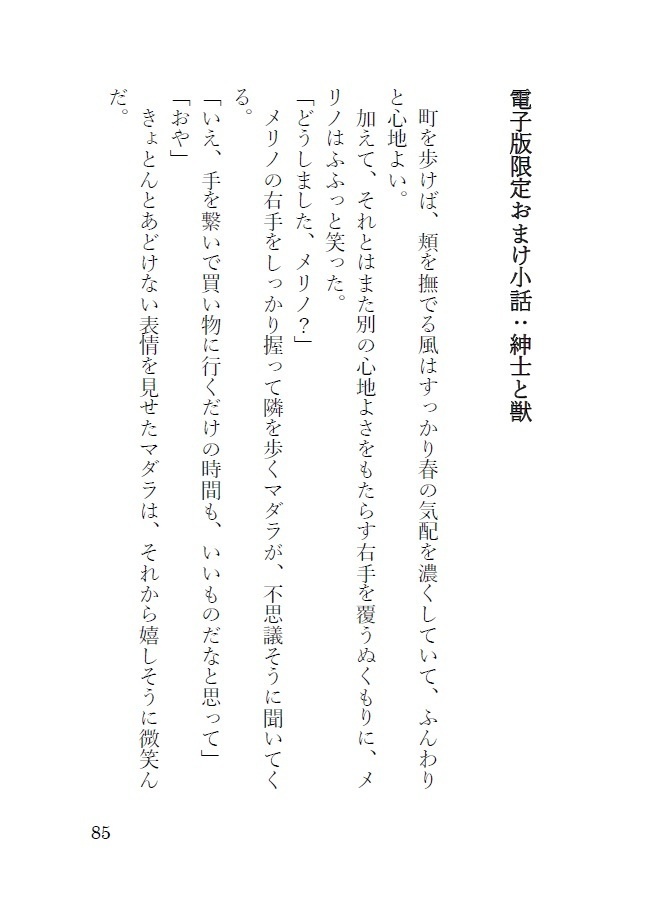 電子版限定おまけ小話：紳士と獣
町を歩けば、頬を撫でる風はすっかり春の気配を濃くしていて、ふんわり
と心地よい。
加えて、それとはまた別の心地よさをもたらす右手を覆うぬくもりに、メ
リノはふふっと笑った。
「どうしました、メリノ？」
メリノの右手をしっかり握って隣を歩くマダラが、不思議そうに聞いてく
る。
「いえ、手を繋いで買い物に行くだけの時間も、いいものだなと思って」
「おや」
きょとんとあどけない表情を見せたマダラは、それから嬉しそうに微笑ん
だ。
85